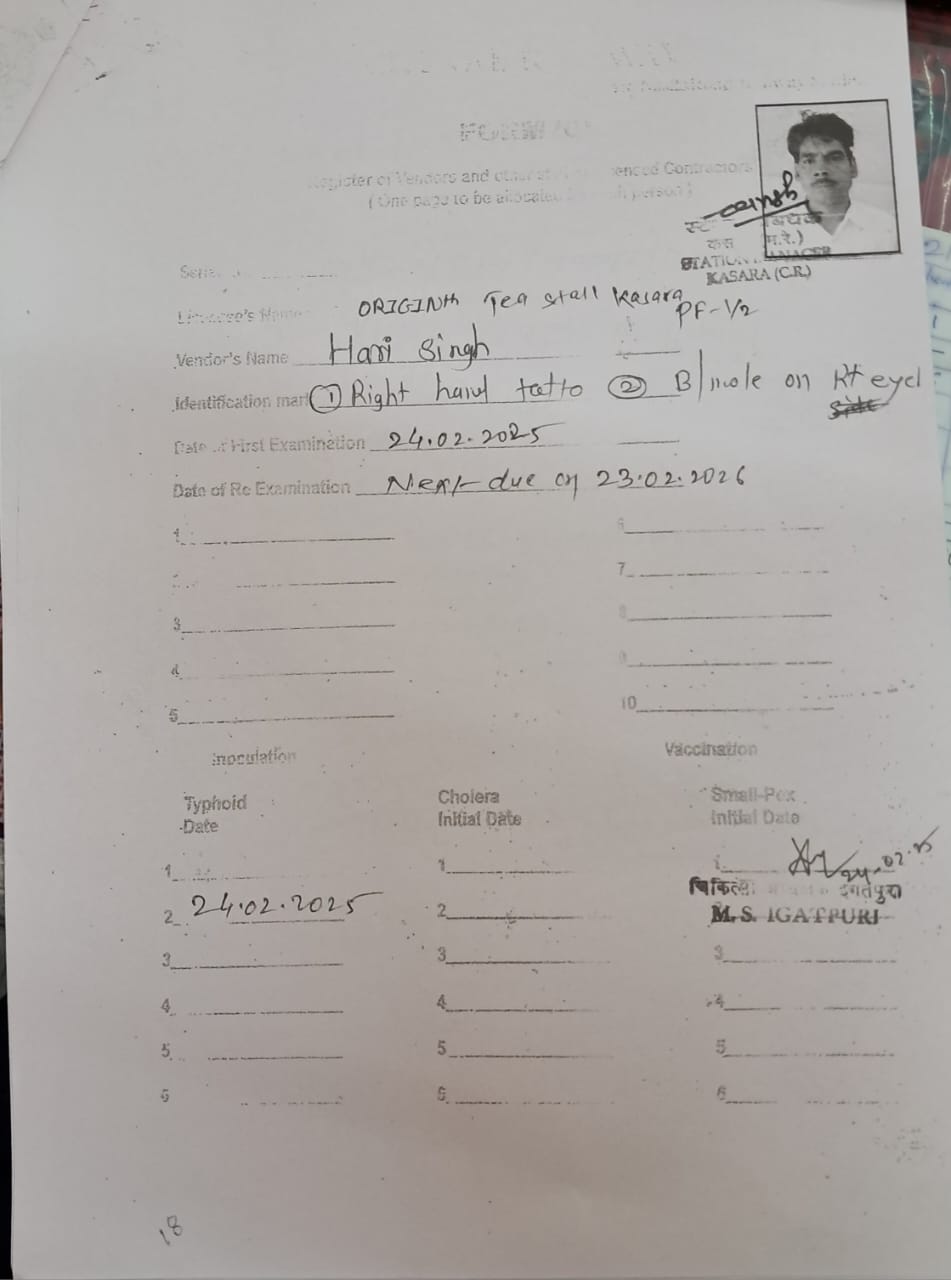 Register of Vendors and other enced Contractors
( One page to be allocated person )
स्ट
कस म.रे.)
STATION MANAGER
KASARA (C.R.)
Licensee's Name ORIGINth Tea stall Kasara
PF-1/2
Vendor's Name Hari Singh
Identification mark ① Right hand tatto ② B/mole on Rt eyel
Date of First Examination 24.02.2025
Date of Re Examination Next due on 23.02.2026
1 6
7
3 8
4 9
5 10
Inoculation Vaccination
Typhoid Cholera Small-Pox
Date Initial Date Initial Date
1 1 1 24.02.25
चिकित्सा इगतपुरी
2 24.02.2025 2 M.S. IGATPURI
3 3 3
4 4 4
5 5 5
6 6 6
18